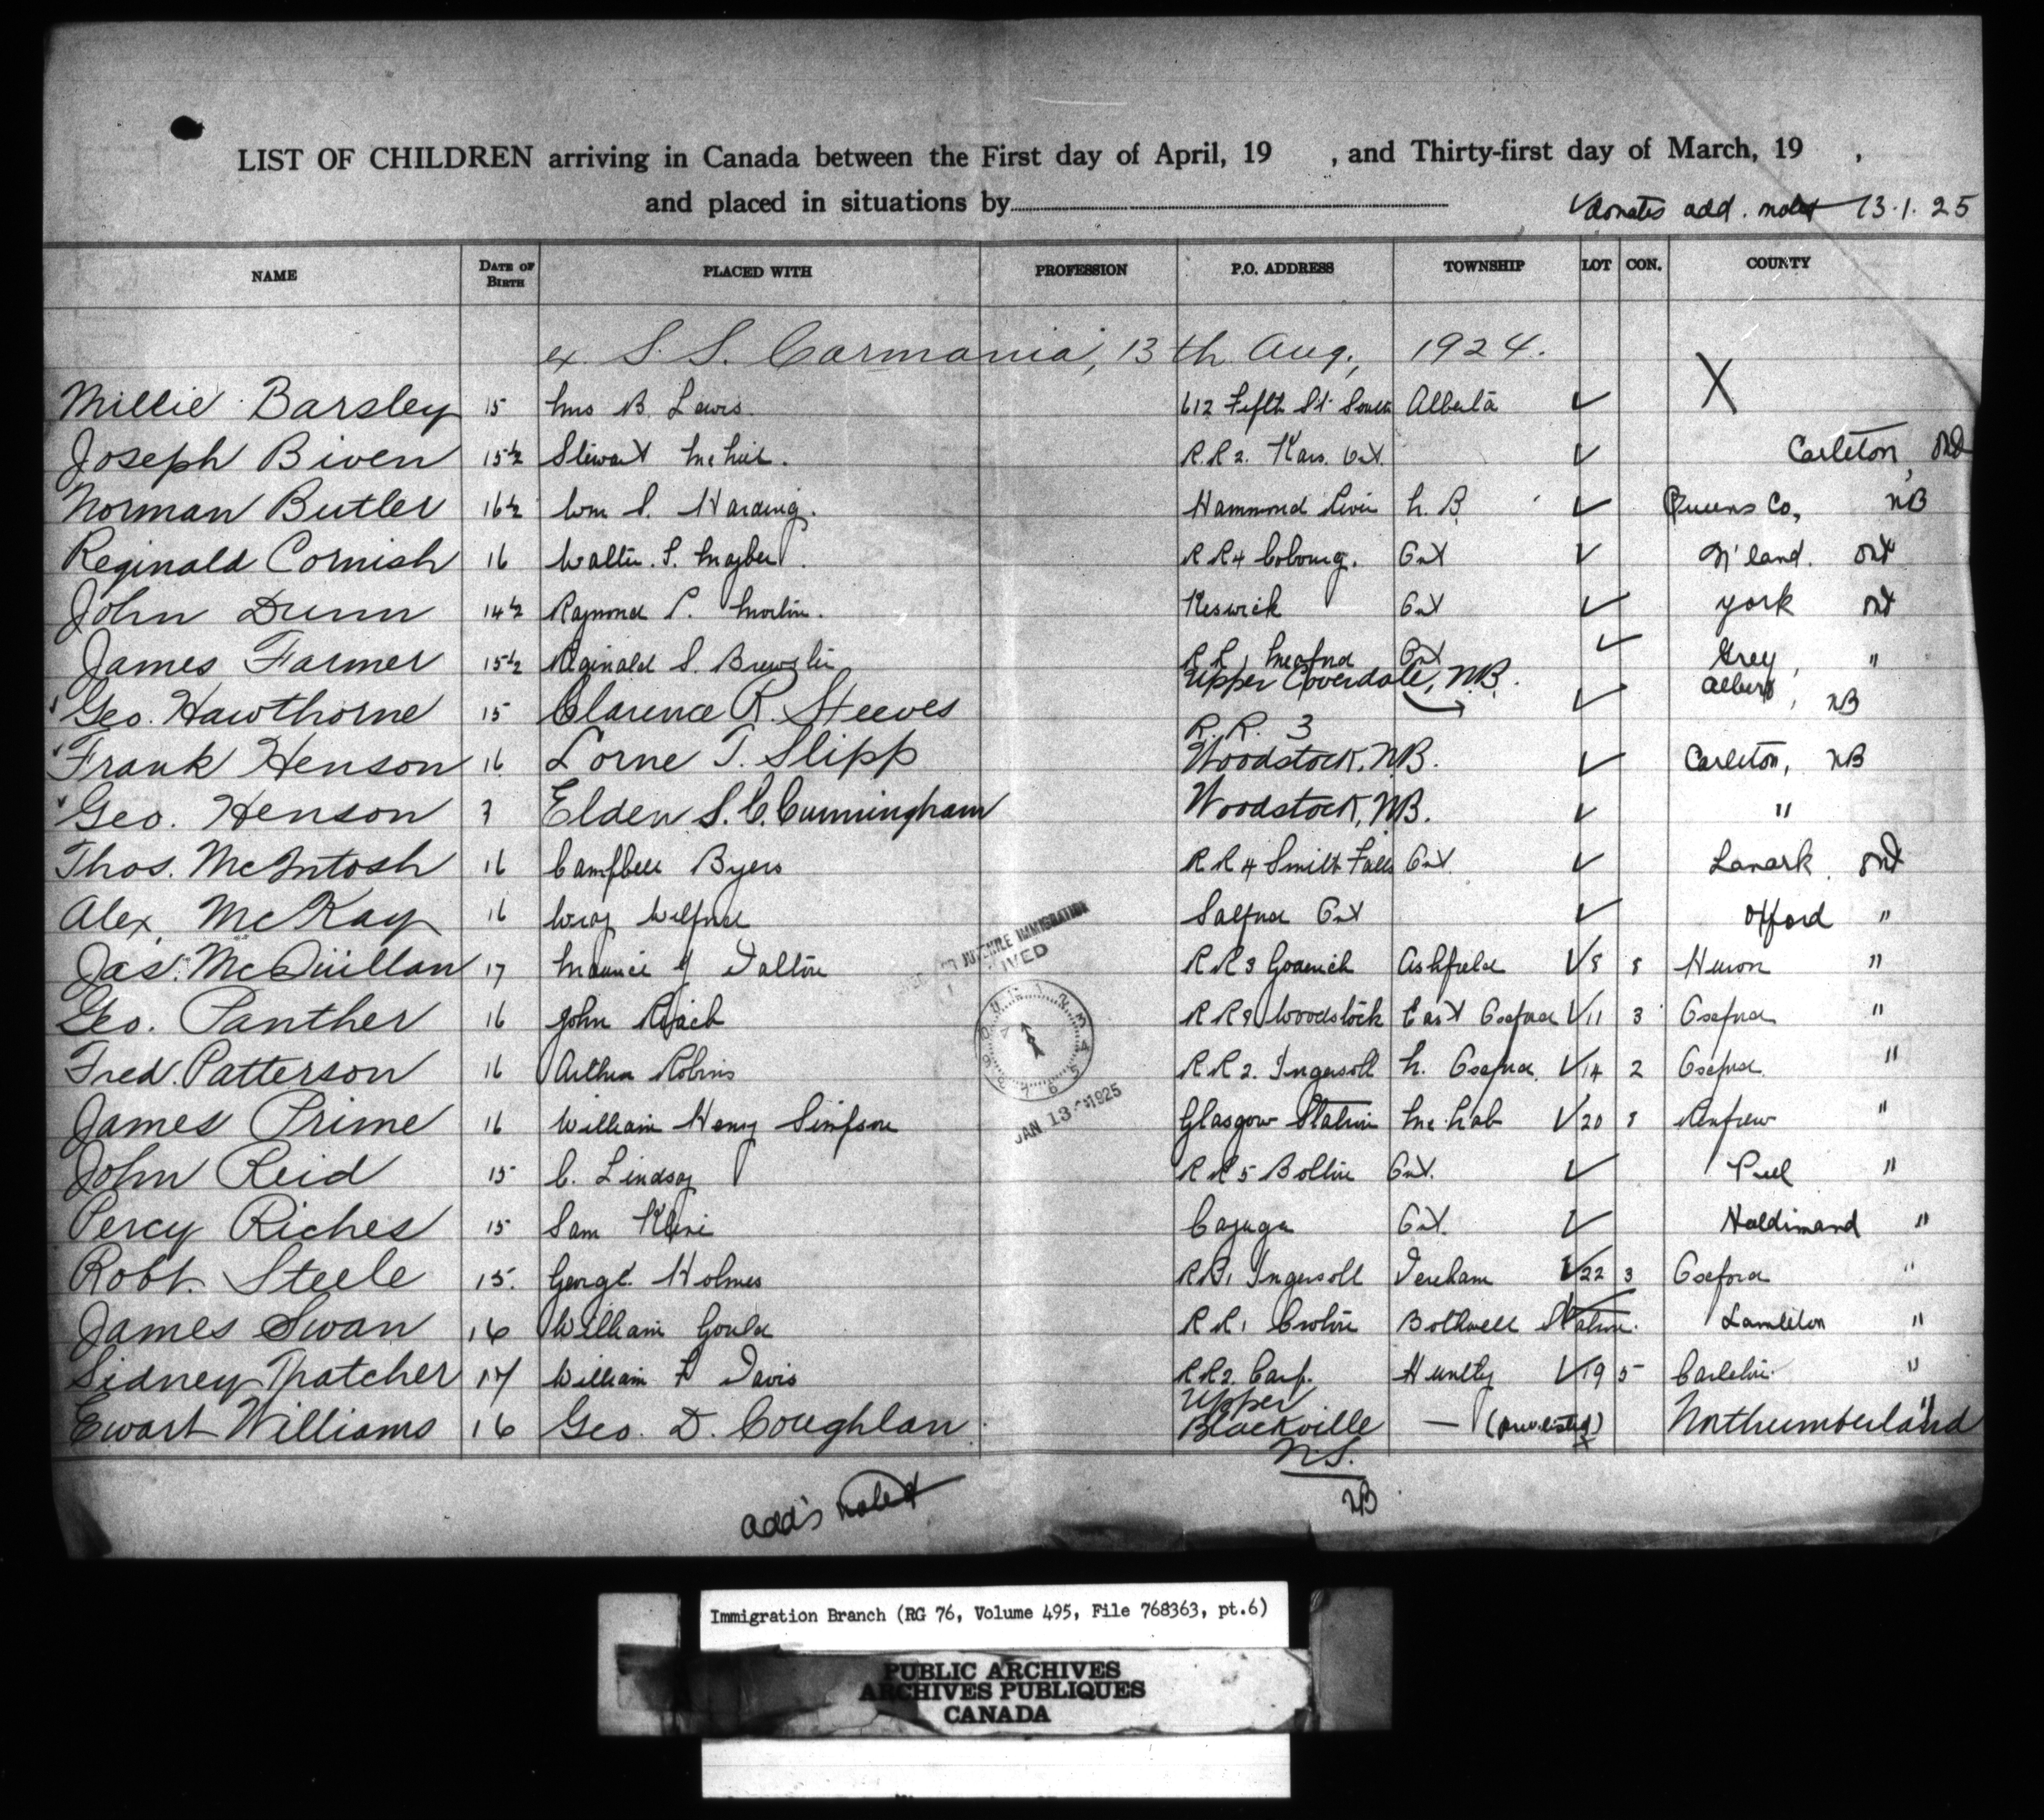 LIST OF CHILDREN arriving in Canada between the First day of April, 19 , and Thirty-first day of March, 19 ,
and placed in situations by
✓ donates add. noted 13.1.25
NAME DATE OF BIRTH PLACED WITH PROFESSION P.O. ADDRESS TOWNSHIP LOT CON. COUNTY
ex S.S. Carmania, 13th Aug, 1924. X
Millie Barsley 15 Mrs B. Lewis. 612 Fifth St South Alberta ✓
Joseph Biven 15½ Stewart R.R 2. Kars. Ont. ✓ Carleton, Ont
Norman Butler 16½ Wm S. Harding. Hammond River N. B. ✓ Queens Co, NB
Reginald Cornish 16 Walter. S. R R 4 Cobourg. Ont ✓ N'land. Ont
John Dunn 14½ Raymond P. Morton. Keswick Ont ✓ York Ont
James Farmer 15½ Reginald S. Brewster R R 1 Meaford Ont ✓ Grey, "
Geo. Hawthorne 15 Clarence R. Steeves Upper Coverdale, N.B. ✓ Albert, NB
Frank Henson 16 Lorne T. Slipp R. R. 3 Woodstock, N.B. ✓ Carleton, NB
Geo. Henson 7 Elden S. C. Cunningham Woodstock, NB. ✓ "
Thos. McIntosh 16 Campbell Byers R R 4 Smith Falls Ont. ✓ Lanark. Ont
Alex. McKay 16 Wray Wilford Salford Ont ✓ Oxford "
Jas. McQuillan 17 Maurice J Dalton R R 3 Goderich Ashfield ✓ 8 8 Huron "
Geo. Panther 16 John Roach R R 8 Woodstock East Oxford ✓ 11 3 Oxford "
Fred. Patterson 16 Arthur Robins R R 2. Ingersoll N. Oxford. ✓ 14 2 Oxford. "
James Prime 16 William Henry Simpson Glasgow Station McNab ✓ 20 8 Renfrew "
John Reid 15 C. Lindsay R R 5 Bolton Ont. ✓ Peel "
Percy Riches 15 Sam Cayuga Ont. ✓ Haldimand "
Robt. Steele 15. George Holmes R R 1 Ingersoll Dereham ✓ 22 3 Oxford "
James Swan 16 William Gould R R 1 Croton Bothwell Station. ✓ Lambton "
Sidney Thatcher 17 William F Davis R R 2. Carp. Huntly ✓ 19 5 Carleton. "
Ewart Williams 16 Geo. D. Coughlan. Upper Blackville N.S. — Northumberland "
NB
add's noted
JUVENILE IMMIGRATION
JAN 13 1925
Immigration Branch (RG 76, Volume 495, File 768363, pt.6)
PUBLIC ARCHIVES
ARCHIVES PUBLIQUES
CANADA